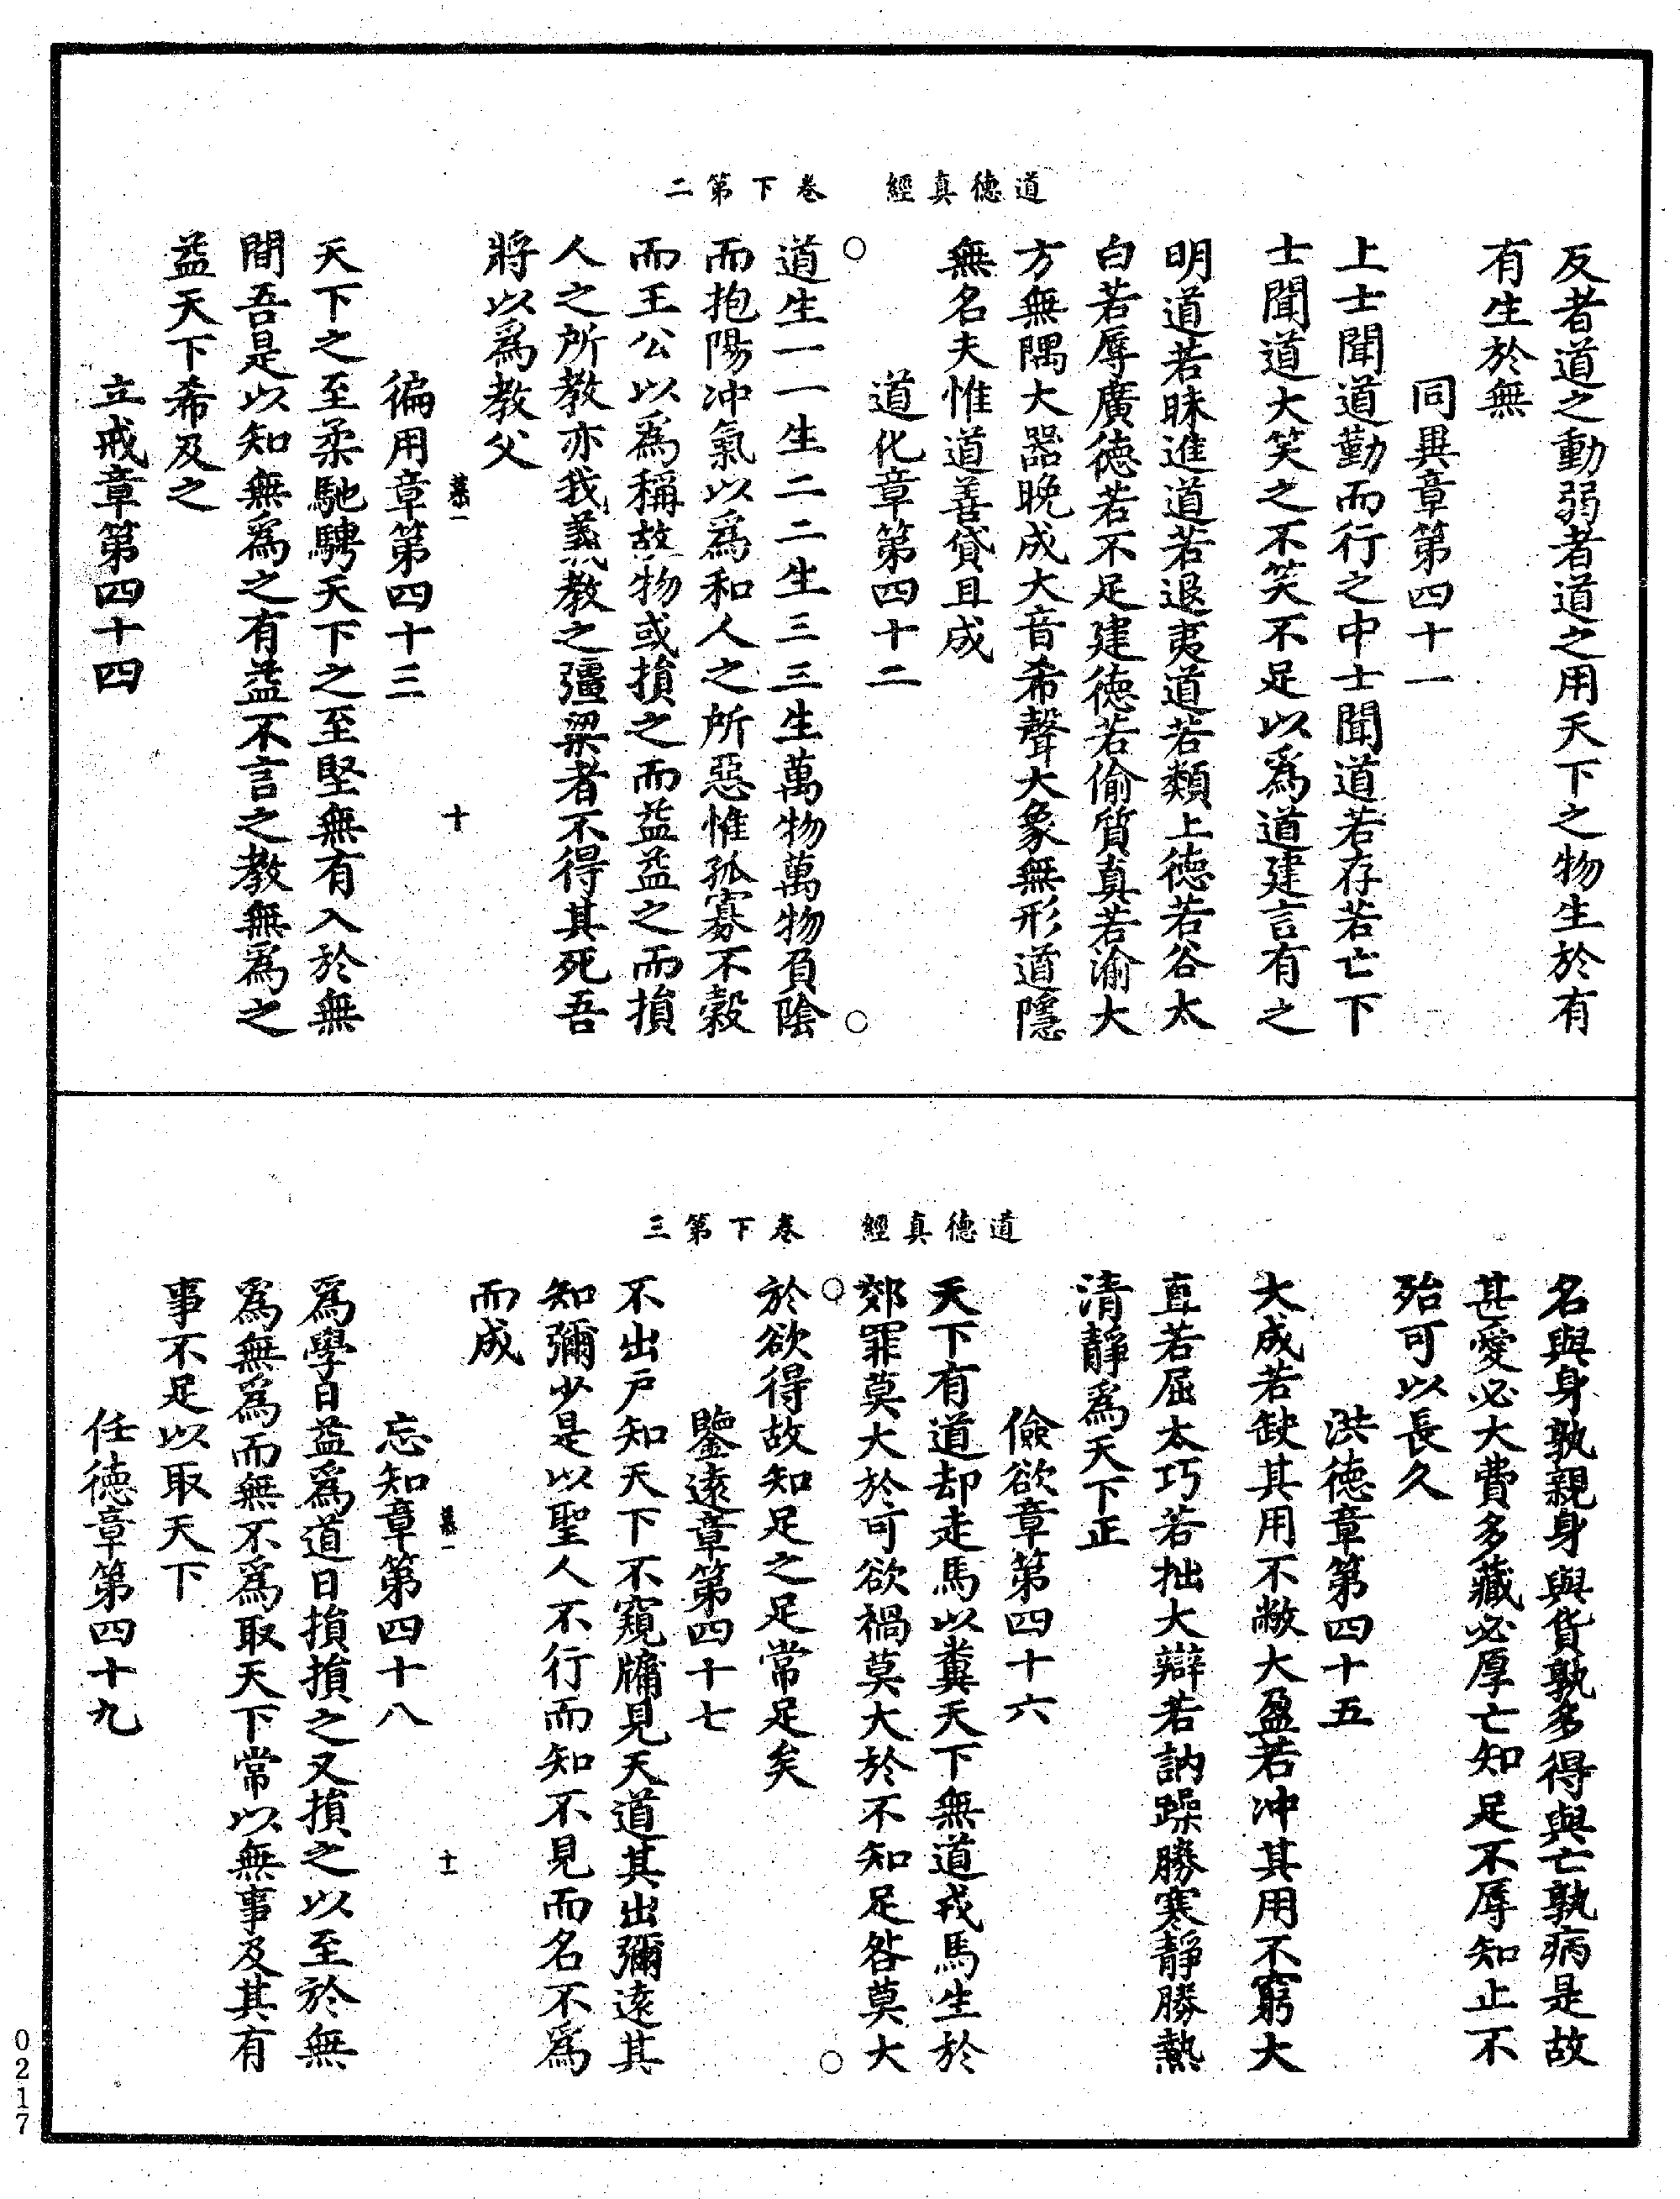 道德真經　卷下第二
反者道之動弱者道之用天下之物生於有
有生於無
同異章第四十一
上士聞道勤而行之中士聞道若存若亡下
士聞道大笑之不笑不足以爲道建言有之
明道若昧進道若退夷道若類上德若谷太
白若辱廣德若不足建德若偷質真若渝大
方無隅大器晚成大音希聲大象無形道隱
無名夫惟道善貸且成
道化章第四十二
道生一一生二二生三三生萬物萬物負陰
而抱陽冲氣以爲和人之所惡惟孤寡不穀
而王公以爲稱故物或損之而益益之而損
人之所教亦我義教之彊梁者不得其死吾
將以爲教父
十
徧用章第四十三
天下之至柔馳騁天下之至堅無有入於無
間吾是以知無爲之有益不言之教無爲之
益天下希及之
立戒章第四十四
道德真經　卷下第三
名與身孰親身與貨孰多得與亡孰病是故
甚愛必大費多藏必厚亡知足不辱知止不
殆可以長久
洪德章第四十五
大成若缺其用不敝大盈若冲其用不窮大
直若屈太巧若拙大辯若訥躁勝寒靜勝熱
清靜爲天下正
儉欲章第四十六
天下有道却走馬以糞天下無道戎馬生於
郊罪莫大於可欲禍莫大於不知足咎莫大
於欲得故知足之足常足矣
鑒遠章第四十七
不出戶知天下不窺牖見天道其出彌遠其
知彌少是以聖人不行而知不見而名不爲
而成
十一
忘知章第四十八
爲學日益爲道日損損之又損之以至於無
爲無爲而無不爲取天下常以無事及其有
事不足以取天下
任德章第四十九
0217